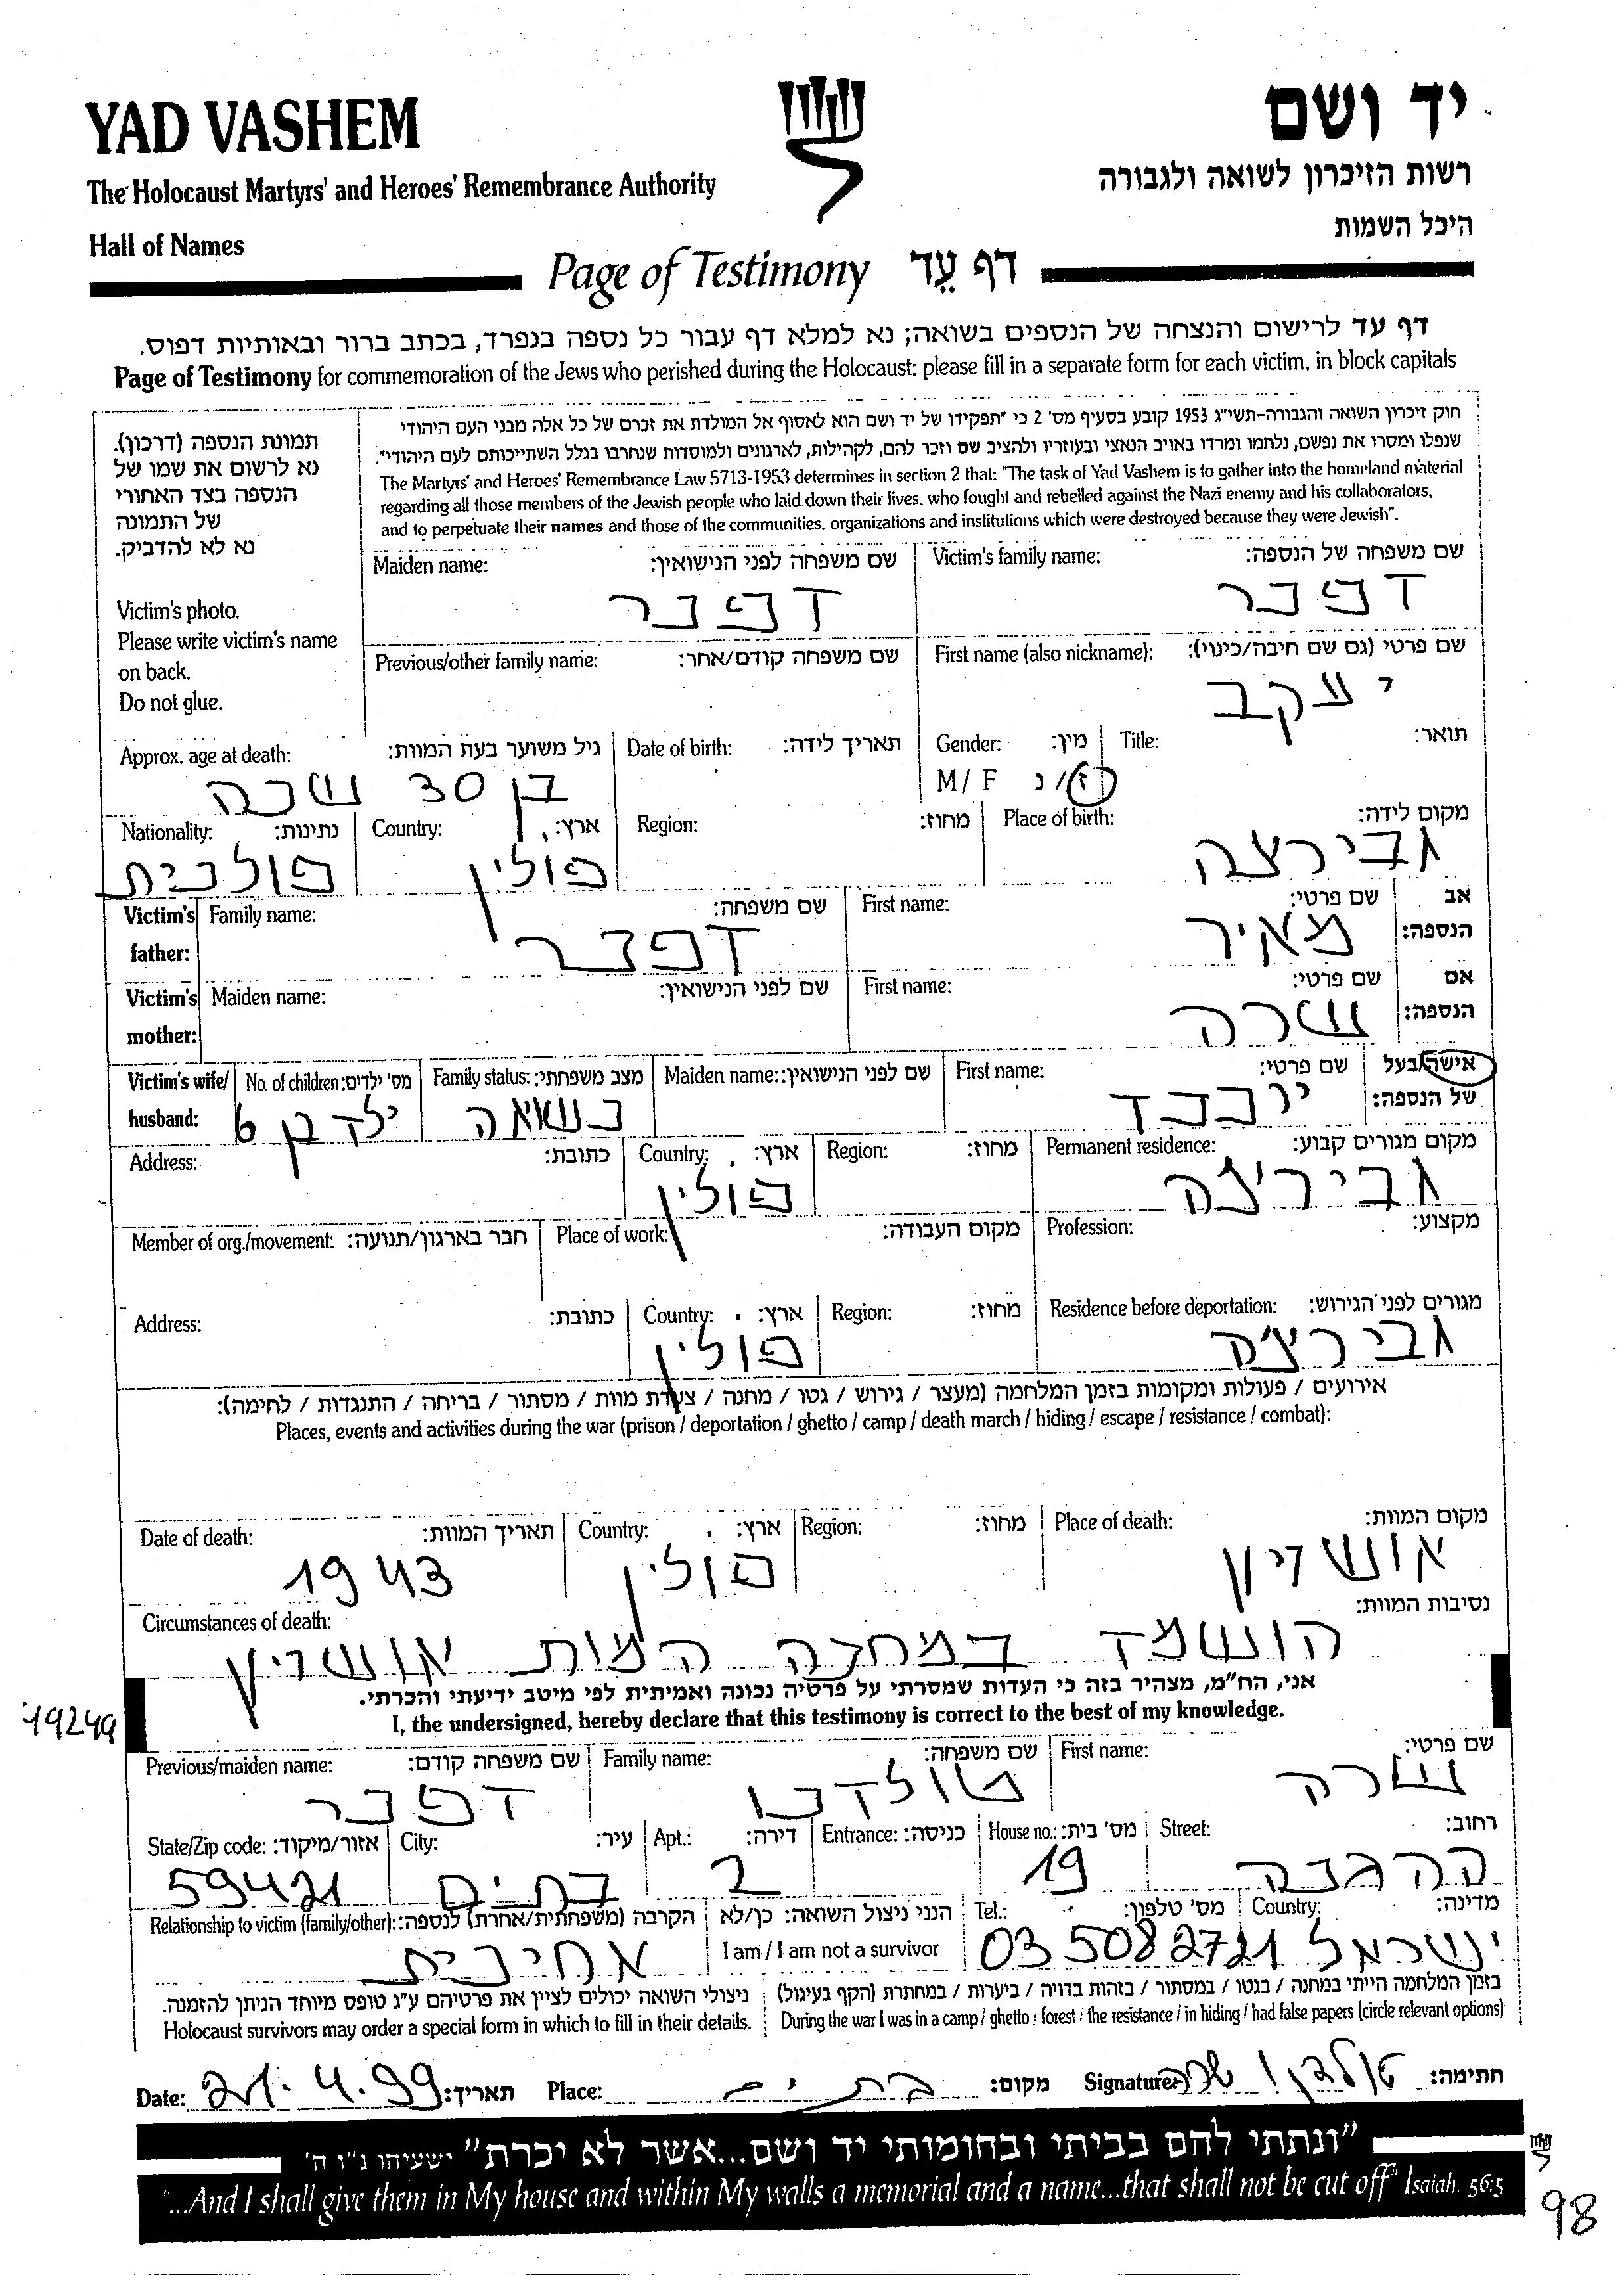 YAD VASHEM
יד ושם
The Holocaust Martyrs' and Heroes' Remembrance Authority
רשות הזיכרון לשואה ולגבורה
Hall of Names
היכל השמות
Page of Testimony דף עֵד
דף עד לרישום והנצחה של הנספים בשואה; נא למלא דף עבור כל נספה בנפרד, בכתב ברור ובאותיות דפוס.
Page of Testimony for commemoration of the Jews who perished during the Holocaust: please fill in a separate form for each victim, in block capitals
חוק זיכרון השואה והגבורה–תשי"ג 1953 קובע בסעיף מס' 2 כי "תפקידו של יד ושם הוא לאסוף אל המולדת את זכרם של כל אלה מבני העם היהודי
שנפלו ומסרו את נפשם, נלחמו ומרדו באויב הנאצי ובעוזריו ולהציב שם וזכר להם, לקהילות, לארגונים ולמוסדות שנחרבו בגלל השתייכותם לעם היהודי".
The Martyrs' and Heroes' Remembrance Law 5713-1953 determines in section 2 that: "The task of Yad Vashem is to gather into the homeland material
regarding all those members of the Jewish people who laid down their lives, who fought and rebelled against the Nazi enemy and his collaborators,
and to perpetuate their names and those of the communities, organizations and institutions which were destroyed because they were Jewish".
תמונת הנספה (דרכון).
נא לרשום את שמו של
הנספה בצד האחורי
של התמונה
נא לא להדביק.
Victim's photo.
Please write victim's name
on back.
Do not glue.
Victim's family name: שם משפחה של הנספה:
דפנר
Maiden name: שם משפחה לפני הנישואין:
דפנר
First name (also nickname): שם פרטי (גם שם חיבה/כינוי):
יעקב
Previous/other family name: שם משפחה קודם/אחר:
Title: תואר:
Gender: מין:
M/ F ז/נ
Date of birth: תאריך לידה:
Approx. age at death: גיל משוער בעת המוות:
בן 30 שנה
Place of birth: מקום לידה:
גבירצה
Region: מחוז:
Country: ארץ:
פולין
Nationality: נתינות:
פולנית
Victim's father: אב הנספה:
First name: שם פרטי:
מאיר
Family name: שם משפחה:
דפנר
Victim's mother: אם הנספה:
First name: שם פרטי:
שרה
Maiden name: שם לפני הנישואין:
Victim's wife/ husband: אישה/בעל של הנספה:
First name: שם פרטי:
יוכבד
Maiden name: שם לפני הנישואין:
Family status: מצב משפחתי:
נשואה
No. of children: מס' ילדים:
ילד בן 6
Permanent residence: מקום מגורים קבוע:
גבירצה
Region: מחוז:
Country: ארץ:
פולין
Address: כתובת:
Profession: מקצוע:
Place of work: מקום העבודה:
Member of org./movement: חבר בארגון/תנועה:
Residence before deportation: מגורים לפני הגירוש:
גבירצה
Region: מחוז:
Country: ארץ:
פולין
Address: כתובת:
אירועים / פעולות ומקומות בזמן המלחמה (מעצר / גירוש / גטו / מחנה / צעדת מוות / מסתור / בריחה / התנגדות / לחימה):
Places, events and activities during the war (prison / deportation / ghetto / camp / death march / hiding / escape / resistance / combat):
Place of death: מקום המוות:
אושויץ
Region: מחוז:
Country: ארץ:
פולין
Date of death: תאריך המוות:
1943
Circumstances of death: נסיבות המוות:
הושמד במחנה המות אושויץ
אני, הח"מ, מצהיר בזה כי העדות שמסרתי על פרטיה נכונה ואמיתית לפי מיטב ידיעתי והכרתי.
I, the undersigned, hereby declare that this testimony is correct to the best of my knowledge.
First name: שם פרטי:
שרה
Family name: שם משפחה:
טולדנו
Previous/maiden name: שם משפחה קודם:
דפנר
Street: רחוב:
ההגנה
House no.: מס' בית:
19
Entrance: כניסה:
Apt.: דירה:
2
City: עיר:
בת ים
State/Zip code: אזור/מיקוד:
59421
Country: מדינה:
ישראל
Tel.: מס' טלפון:
03 5082721
הנני ניצול השואה: כן/לא
I am / I am not a survivor
Relationship to victim (family/other): הקרבה (משפחתית/אחרת) לנספה:
אחינית
בזמן המלחמה הייתי במחנה / בגטו / במסתור / בזהות בדויה / ביערות / במחתרת (הקף בעיגול)
During the war I was in a camp / ghetto / forest / the resistance / in hiding / had false papers (circle relevant options)
ניצולי השואה יכולים לציין את פרטיהם ע"ג טופס מיוחד הניתן להזמנה.
Holocaust survivors may order a special form in which to fill in their details.
Date: 21.4.99 תאריך: Place: בת ים מקום: Signature: טולדנו שרה חתימה:
"ונתתי להם בביתי ובחומותי יד ושם...אשר לא יכרת" ישעיהו נ"ו ה'
"...And I shall give them in My house and within My walls a memorial and a name...that shall not be cut off" Isaiah, 56:5
98